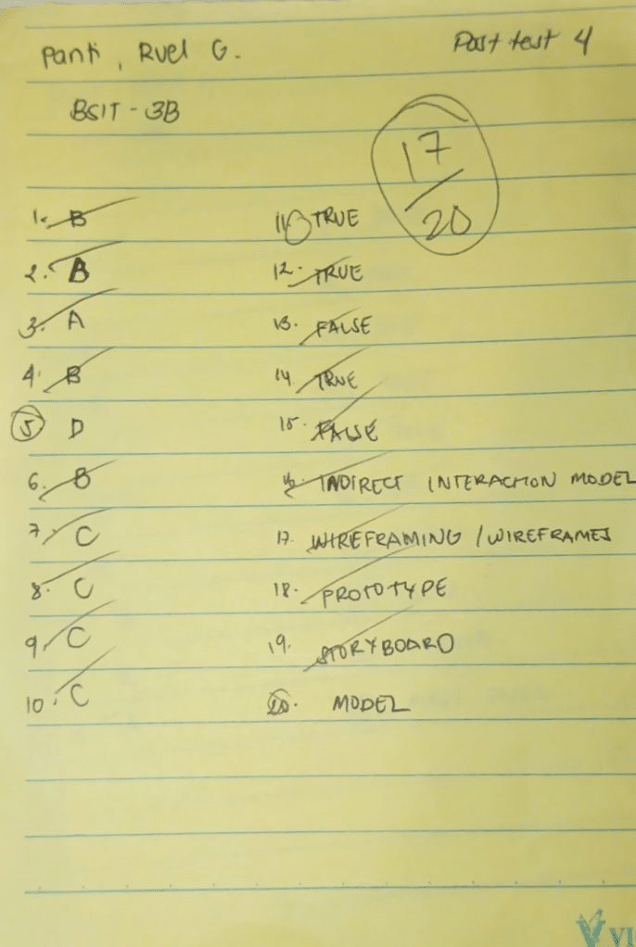 Panti, Ruel G.
Post test 4
BSIT - 3B
17
20
1. B
2. B
3. A
4. B
5 D
6. B
7. C
8. C
9. C
10. C
11 TRUE
12. TRUE
13. FALSE
14 TRUE
15. FALSE
16. INDIRECT INTERACTION MODEL
17. WIREFRAMING / WIREFRAMES
18. PROTOTYPE
19. STORYBOARD
20. MODEL
VI